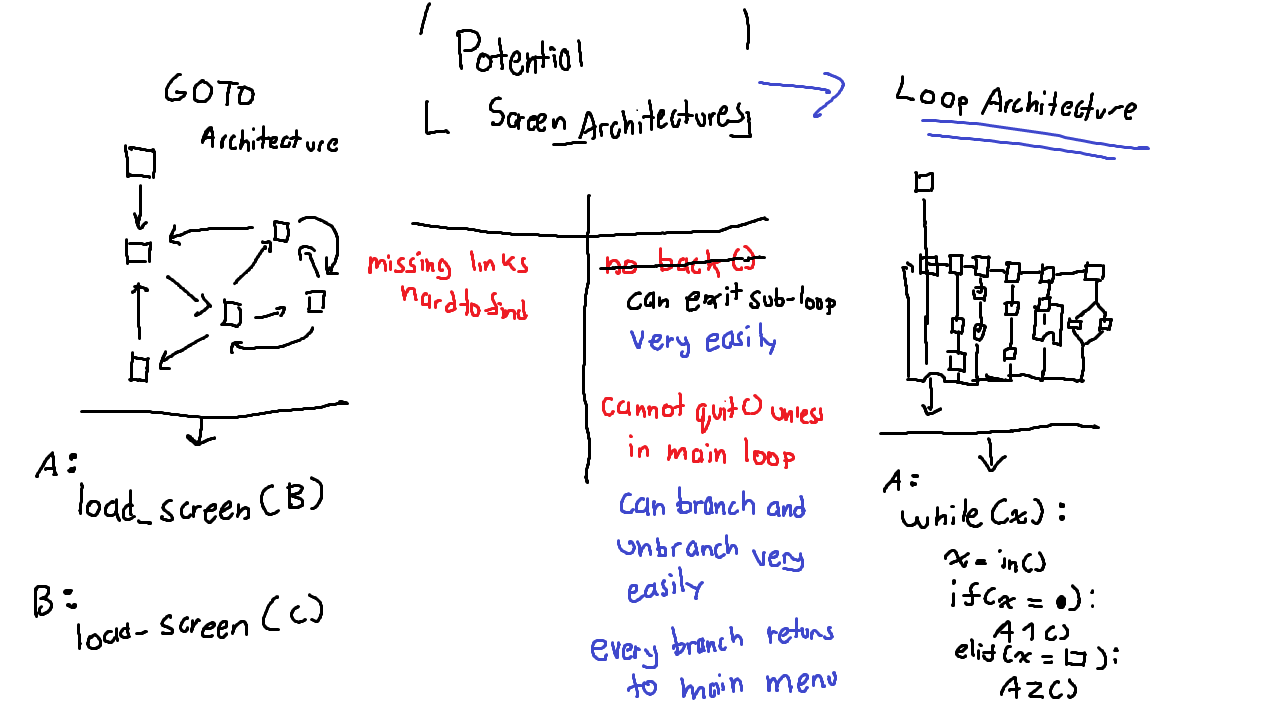 Potential
Screen Architectures
GOTO
Architecture
A:
load_screen(B)
B:
load-screen(c)
missing links
hard to find
no back()
can exit sub-loop
very easily
cannot quit() unless
in main loop
can branch and
unbranch very
easily
every branch returns
to main menu
Loop Architecture
A:
while(x):
x = in()
if(x = 0):
A1()
elif(x = 1):
A2()